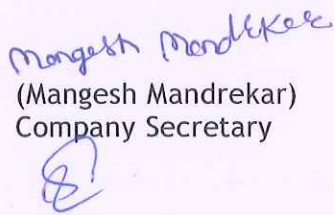 Mangesh Mandrekar
(Mangesh Mandrekar)
Company Secretary